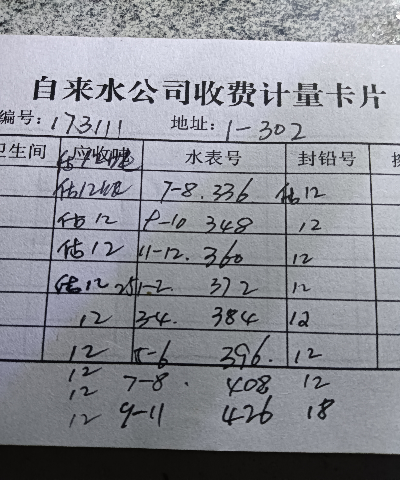 自来水公司收费计量卡片
编号: 173111 地址: 1-302
卫生间 应收吨 水表号 封铅号
估12吨 7-8. 336 估12
估12 9-10 348 12
估12 11-12. 360 12
估12 25 1-2 372 12
12 3-4. 384 12
12 5-6 396. 12
12
12 7-8. 408 12
12 9-11 426 18